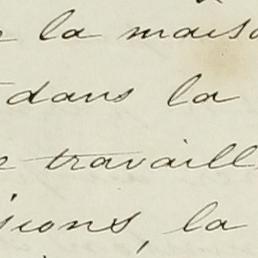 la mais
dans la
travaill
sions, la